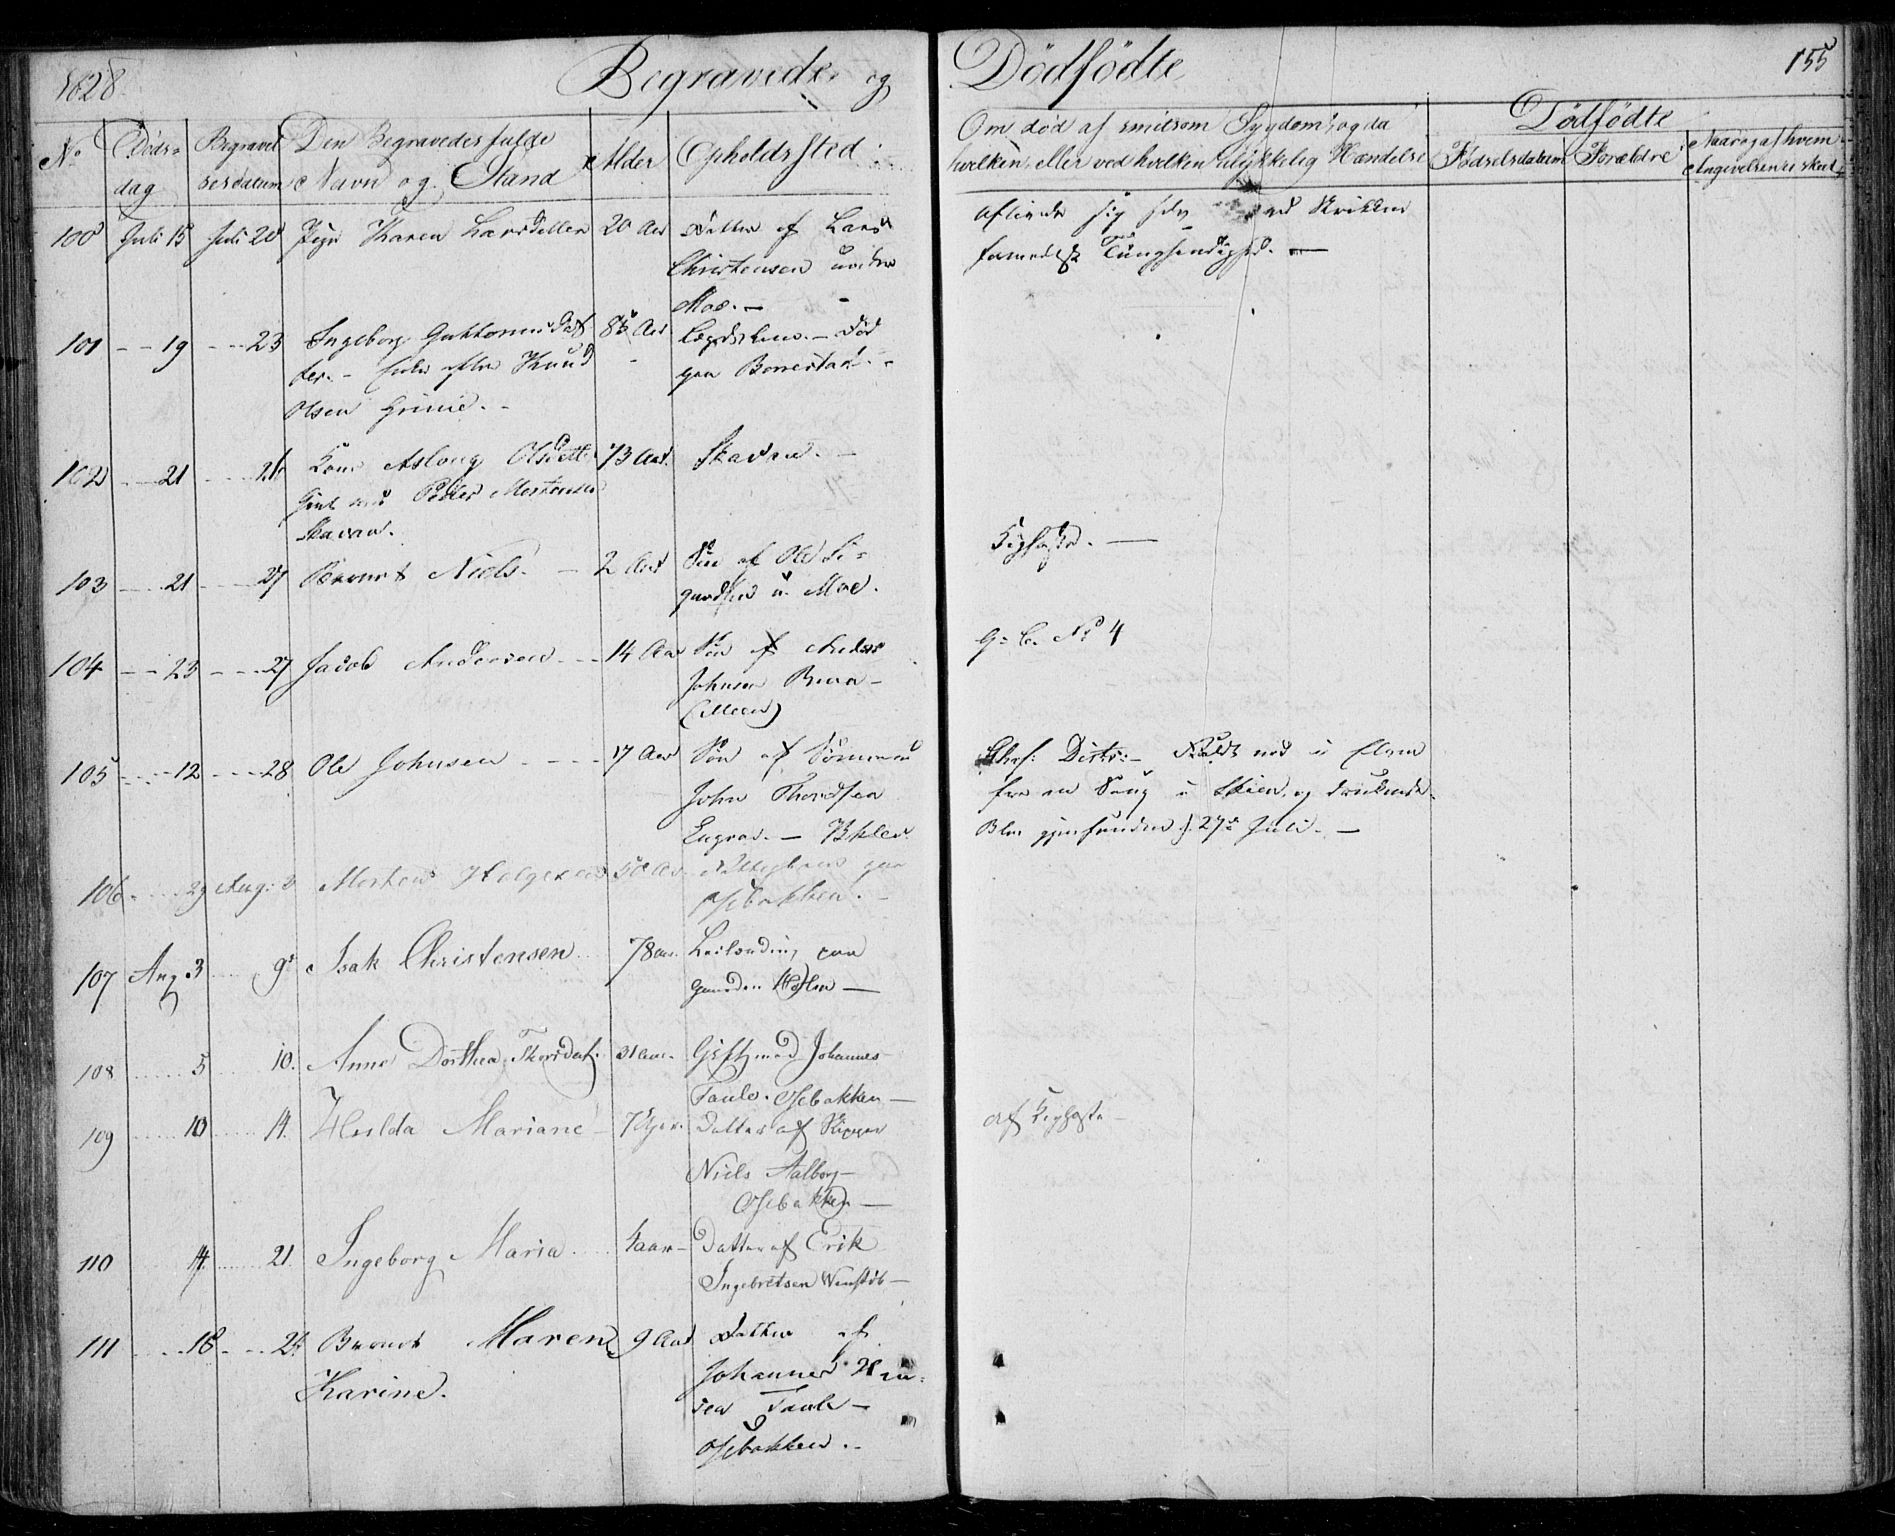 1828. Begravede og Dödfödte 155
No Døds-dag Begravelsesdatum Den Begravedes fulde Navn og Stand Alder Opholdssted
Om död af smitsom Sygdom, og da hvilken, eller ved hvilken ulykkelig Hændelse
Dödfödte
Födselsdatum Forældre Naar og af hvem Angivelsen er skeet
100 Juli 15 Juli 20 Pige Karen Larsdatter 20 Aar Datter af Lars
Christensen under
Moe. —
Aflivede sig selv ved
formedelst Tungsindighed. —
101 - - 19 - - 23 Ingeborg Guttormsdat
ter. - Enke efter Knud
Olsen Grinie. -
85 Aar Lægdslem. - Död
paa Borrestad. -
102 - - 21 - - 26 Kone Asloug Olsdatt.
Givt med Peder Mortensen
Skavan.
73 Aar. Skavan. -
103 - - 21 - - 27 Barnet Niels. - 2 Aar Sön af Ole Si-
gurdsen u. Moe.
Kighoste. —
104 - - 23 - - 27 Jacob Andersen - - 14 Aar Sön af Anders
Johnsen
G: C. No 4
105 - - 12 - - 28 Ole Johnsen - - - 17 Aar Sön af Sömand
John Thordsen
Engrav. -
Faldt ned i Elven
fra en Saug i Skien, og druknede.
Blev gjenfunden d. 27de Juli. —
106 - - 29 Aug: 3 Morten Holgersen 50 Aar paa
Osebakken. -
107 Aug 3 - - 9 Isak Christensen 78 aar. Leilænding paa
Gaarden —
108 - - 5 - - 10. Anne Dorthea Thorsdat. 31 aar. Gift med Johannes
Taule. Osebakken —
109 - - 10 - - 14. Hulda Mariane - 7 Uger. Datter af Skipper
Niels Aalborg —
Osebakken —
af Kighoste —
110 14 - - 21. Ingeborg Maria. - - aar - Datter af Erik
Ingebretsen Wenstöb —
111 - - 18 - - 24 Barnet Maren
Karine.
9 Aar Datter af
Johannes
sen Taule -
Osebakken. -